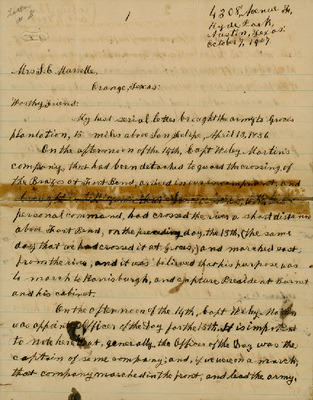 1
4308, Avenue H,
Hyde Park,
Austin, Texas.
October 7, 1907.
Mrs. J. C. Marselle,
Orange, Texas:
Worthy Friend:
My last serial letter brought the army to Groce's
plantation, 15 miles above San Felipe, April 13, 1836.
On the afternoon of the 14th, Capt Wiley Martin's
company, that had been detached to guard the crossing of
the Brazos at Fort Bend, arrived in our encampment, and
personal command, had crossed the river a short distance
above Fort Bend, on the preceding day, the 13th, (the same
day that we had crossed it at Groce's,) and marched east,
from the river, and it was believed that his purpose was
to march to Harrisburgh, and capture President Burnet
and his cabinet.
On the afternoon of the 14th, Capt Wiley Martin
was appoint officer of the Day for the 15th. It is important
to note here that, generally, the Officer of the Day was the
captain of some company; and, if we were on a march,
that company marched in the front, and lead the army.